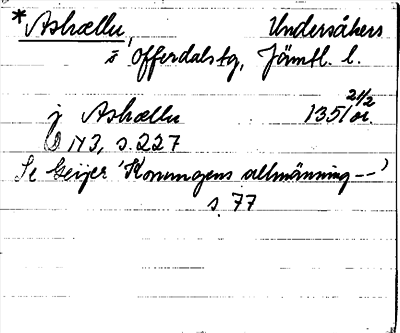 *Ashællu, Undersåkers
i Offerdals tg, Jämtl. l.
j Ashællu 21/2 1351 or.
D N 3, s. 227
Se Geijer 'Konungens allmänning --'
s. 77